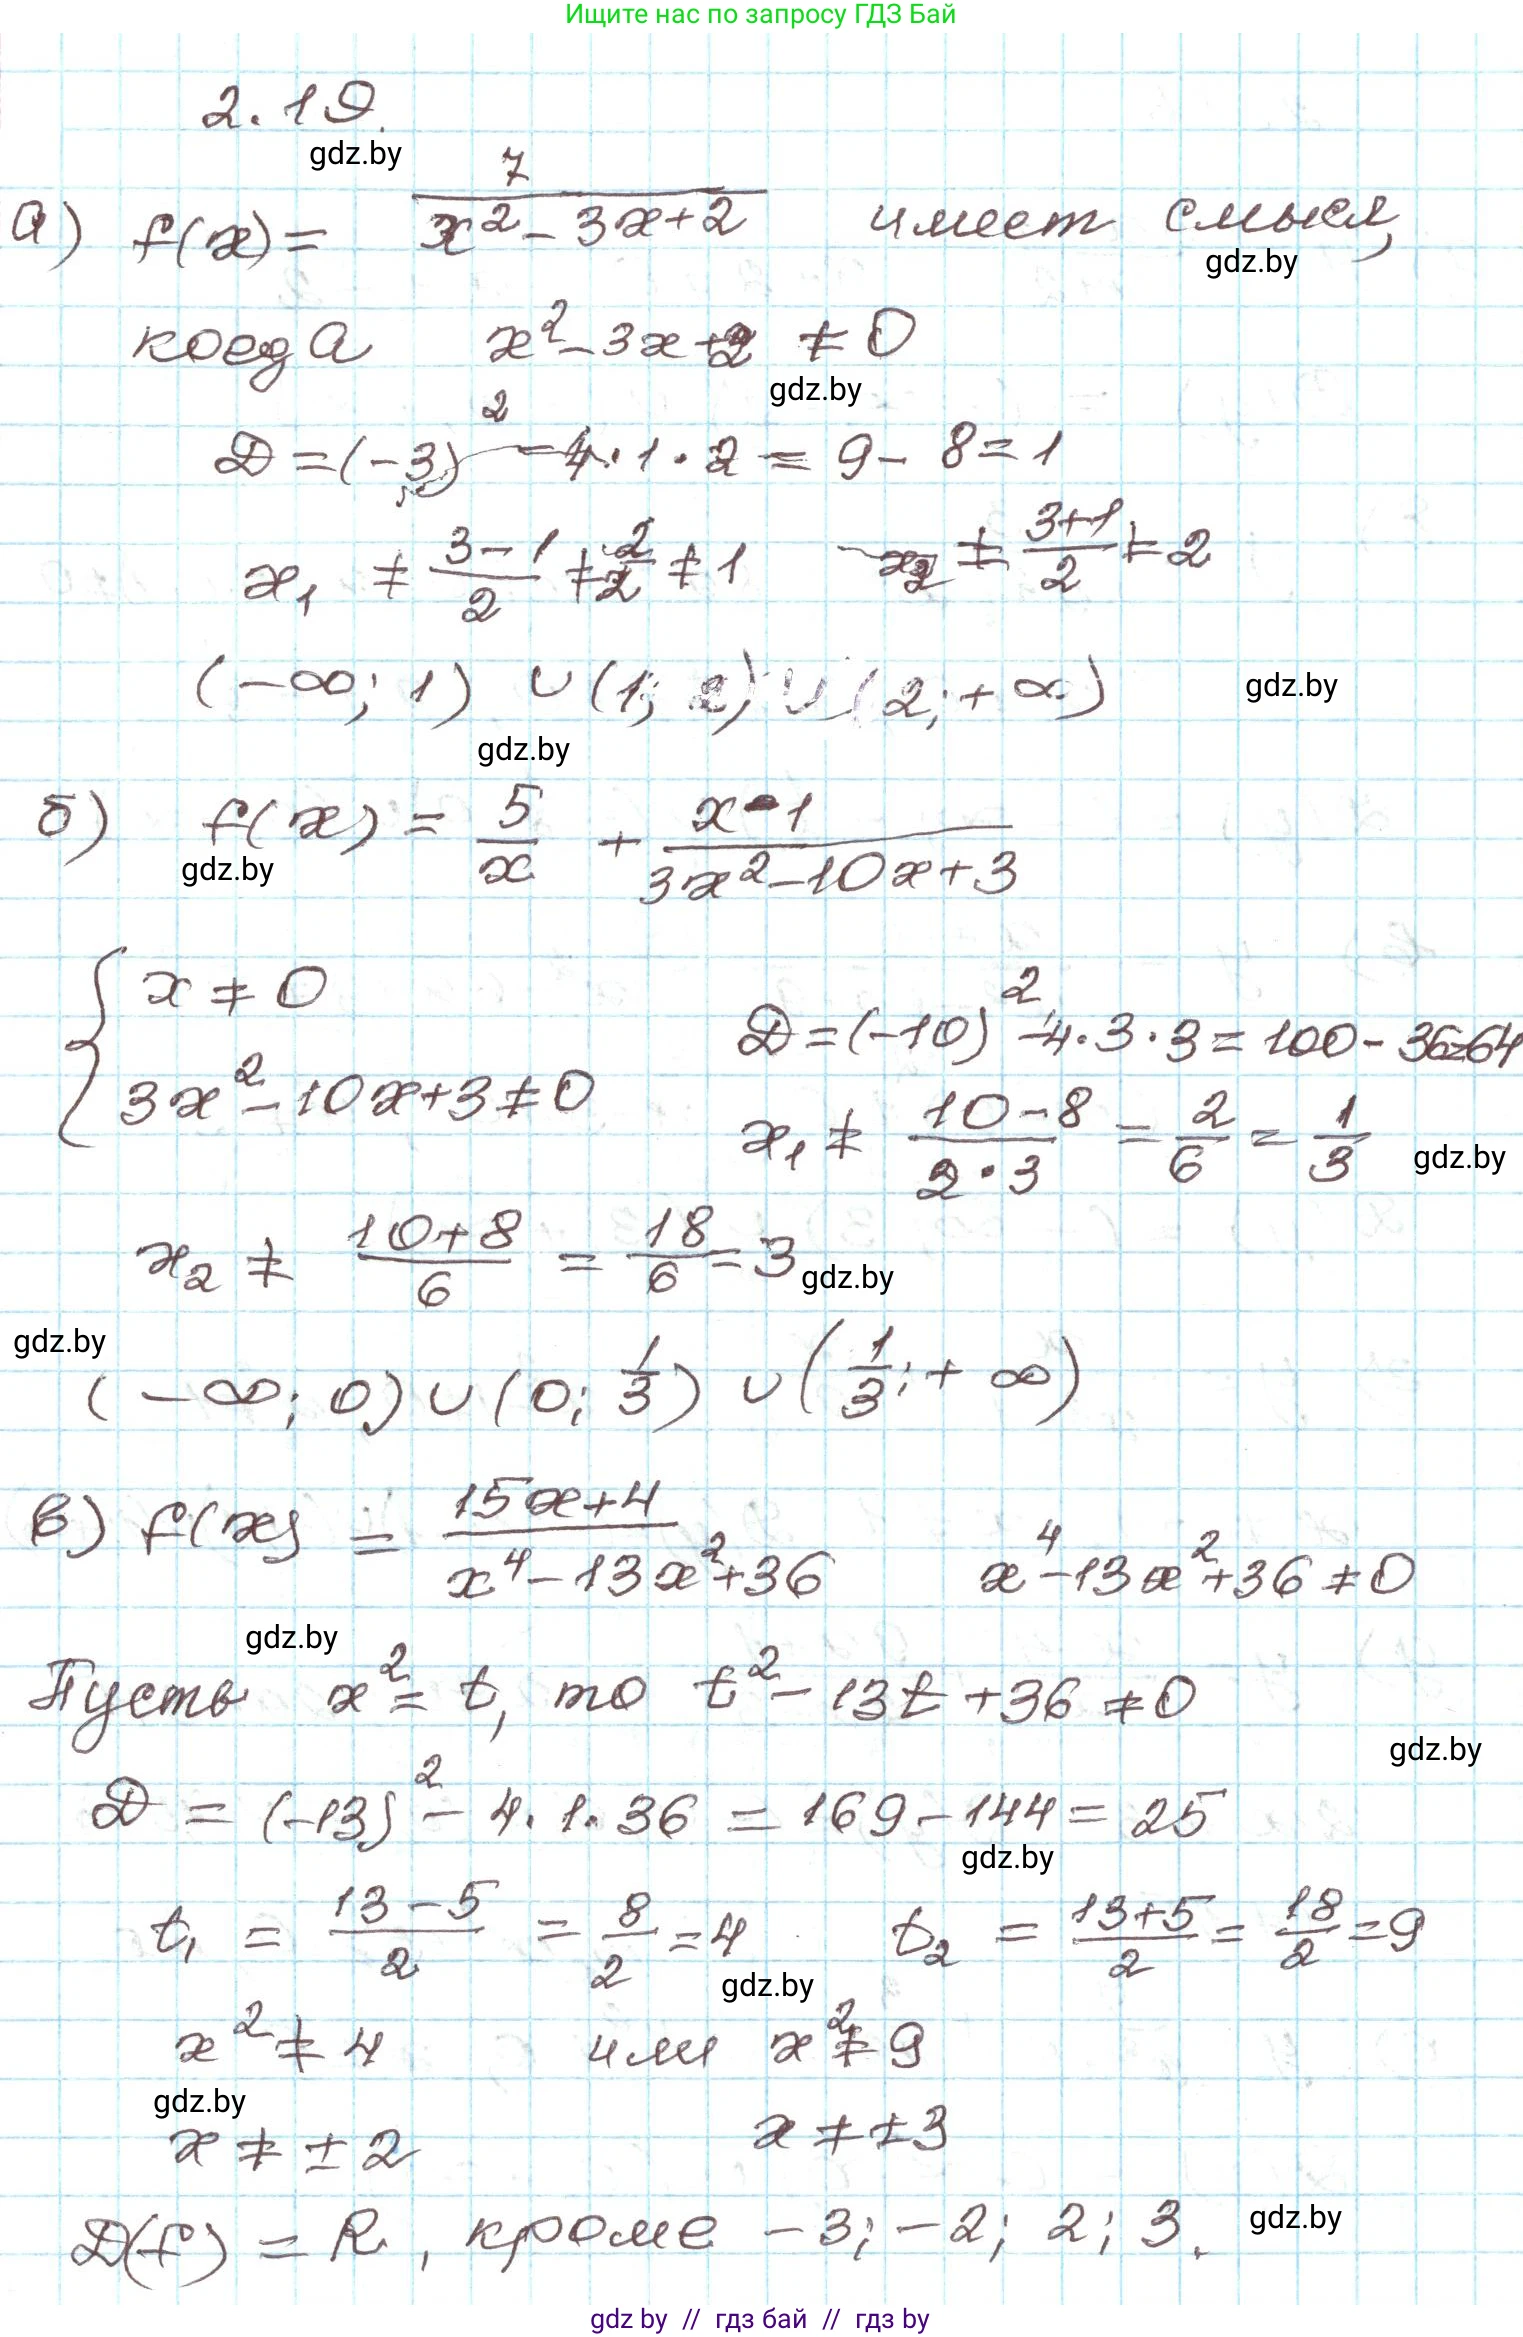 Ищите нас по запросу ГДЗ Бай
2.19.
gdz.by
а) f(x) = 7/(x² - 3x + 2) имеет смысл,
gdz.by
когда x² - 3x + 2 ≠ 0
gdz.by
D = (-3)² - 4·1·2 = 9 - 8 = 1
x₁ ≠ (3-1)/2 ≠ 2/2 ≠ 1 x₂ ≠ (3+1)/2 ≠ 2
(-∞; 1) ∪ (1; 2) ∪ (2; +∞) gdz.by
gdz.by
б) f(x) = 5/x + (x-1)/(3x² - 10x + 3)
gdz.by
{ x ≠ 0
3x² - 10x + 3 ≠ 0
D = (-10)² - 4·3·3 = 100 - 36 = 64
x₁ ≠ (10-8)/(2·3) = 2/6 = 1/3 gdz.by
x₂ ≠ (10+8)/6 = 18/6 = 3 gdz.by
gdz.by
(-∞; 0) ∪ (0; 1/3) ∪ (1/3; +∞)
в) f(x) = (15x+4)/(x⁴ - 13x² + 36) x⁴ - 13x² + 36 ≠ 0
gdz.by
Пусть x² = t, то t² - 13t + 36 ≠ 0
gdz.by
D = (-13)² - 4·1·36 = 169 - 144 = 25
gdz.by
t₁ = (13-5)/2 = 8/2 = 4 t₂ = (13+5)/2 = 18/2 = 9
gdz.by
x² ≠ 4 или x² ≠ 9
gdz.by
x ≠ ±2 x ≠ ±3
D(f) = R, кроме -3; -2; 2; 3. gdz.by
gdz by // гдз бай // гдз by